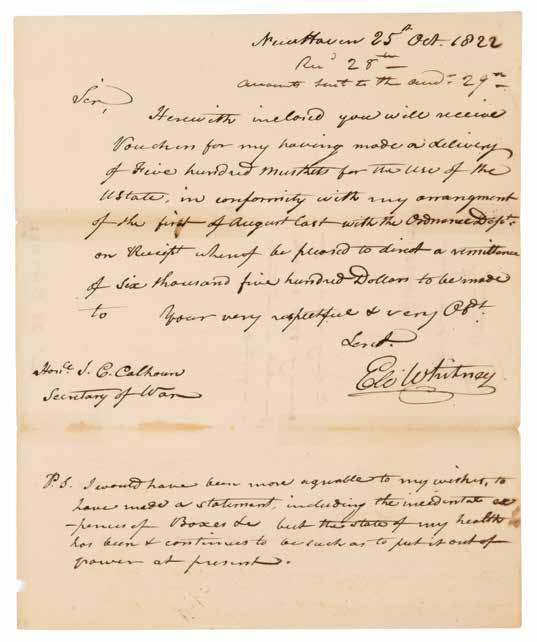 New Haven 25th Oct. 1822
Recd 28th
Accounts sent to the Aud. 29th
Sir,
Herewith inclosed you will receive
Vouchers for my having made a delivery
of Five hundred Muskets for the Use of the
UState, in conformity with my arrangment
of the first of August last with the Ordnance Dept.
on Receipt whereof be pleased to direct a remittance
of Six thousand five hundred Dollars to be made
to Your very respectful & very Obdt.
Servt.
Eli Whitney
Honle. J. C. Calhoun
Secretary of War
P.S. I would have been more agreable to my wishes, to
have made a statement, including the incidental ex
-pences of Boxes &c but the state of my health
has been & continues to be such as to put it out of
power at present.